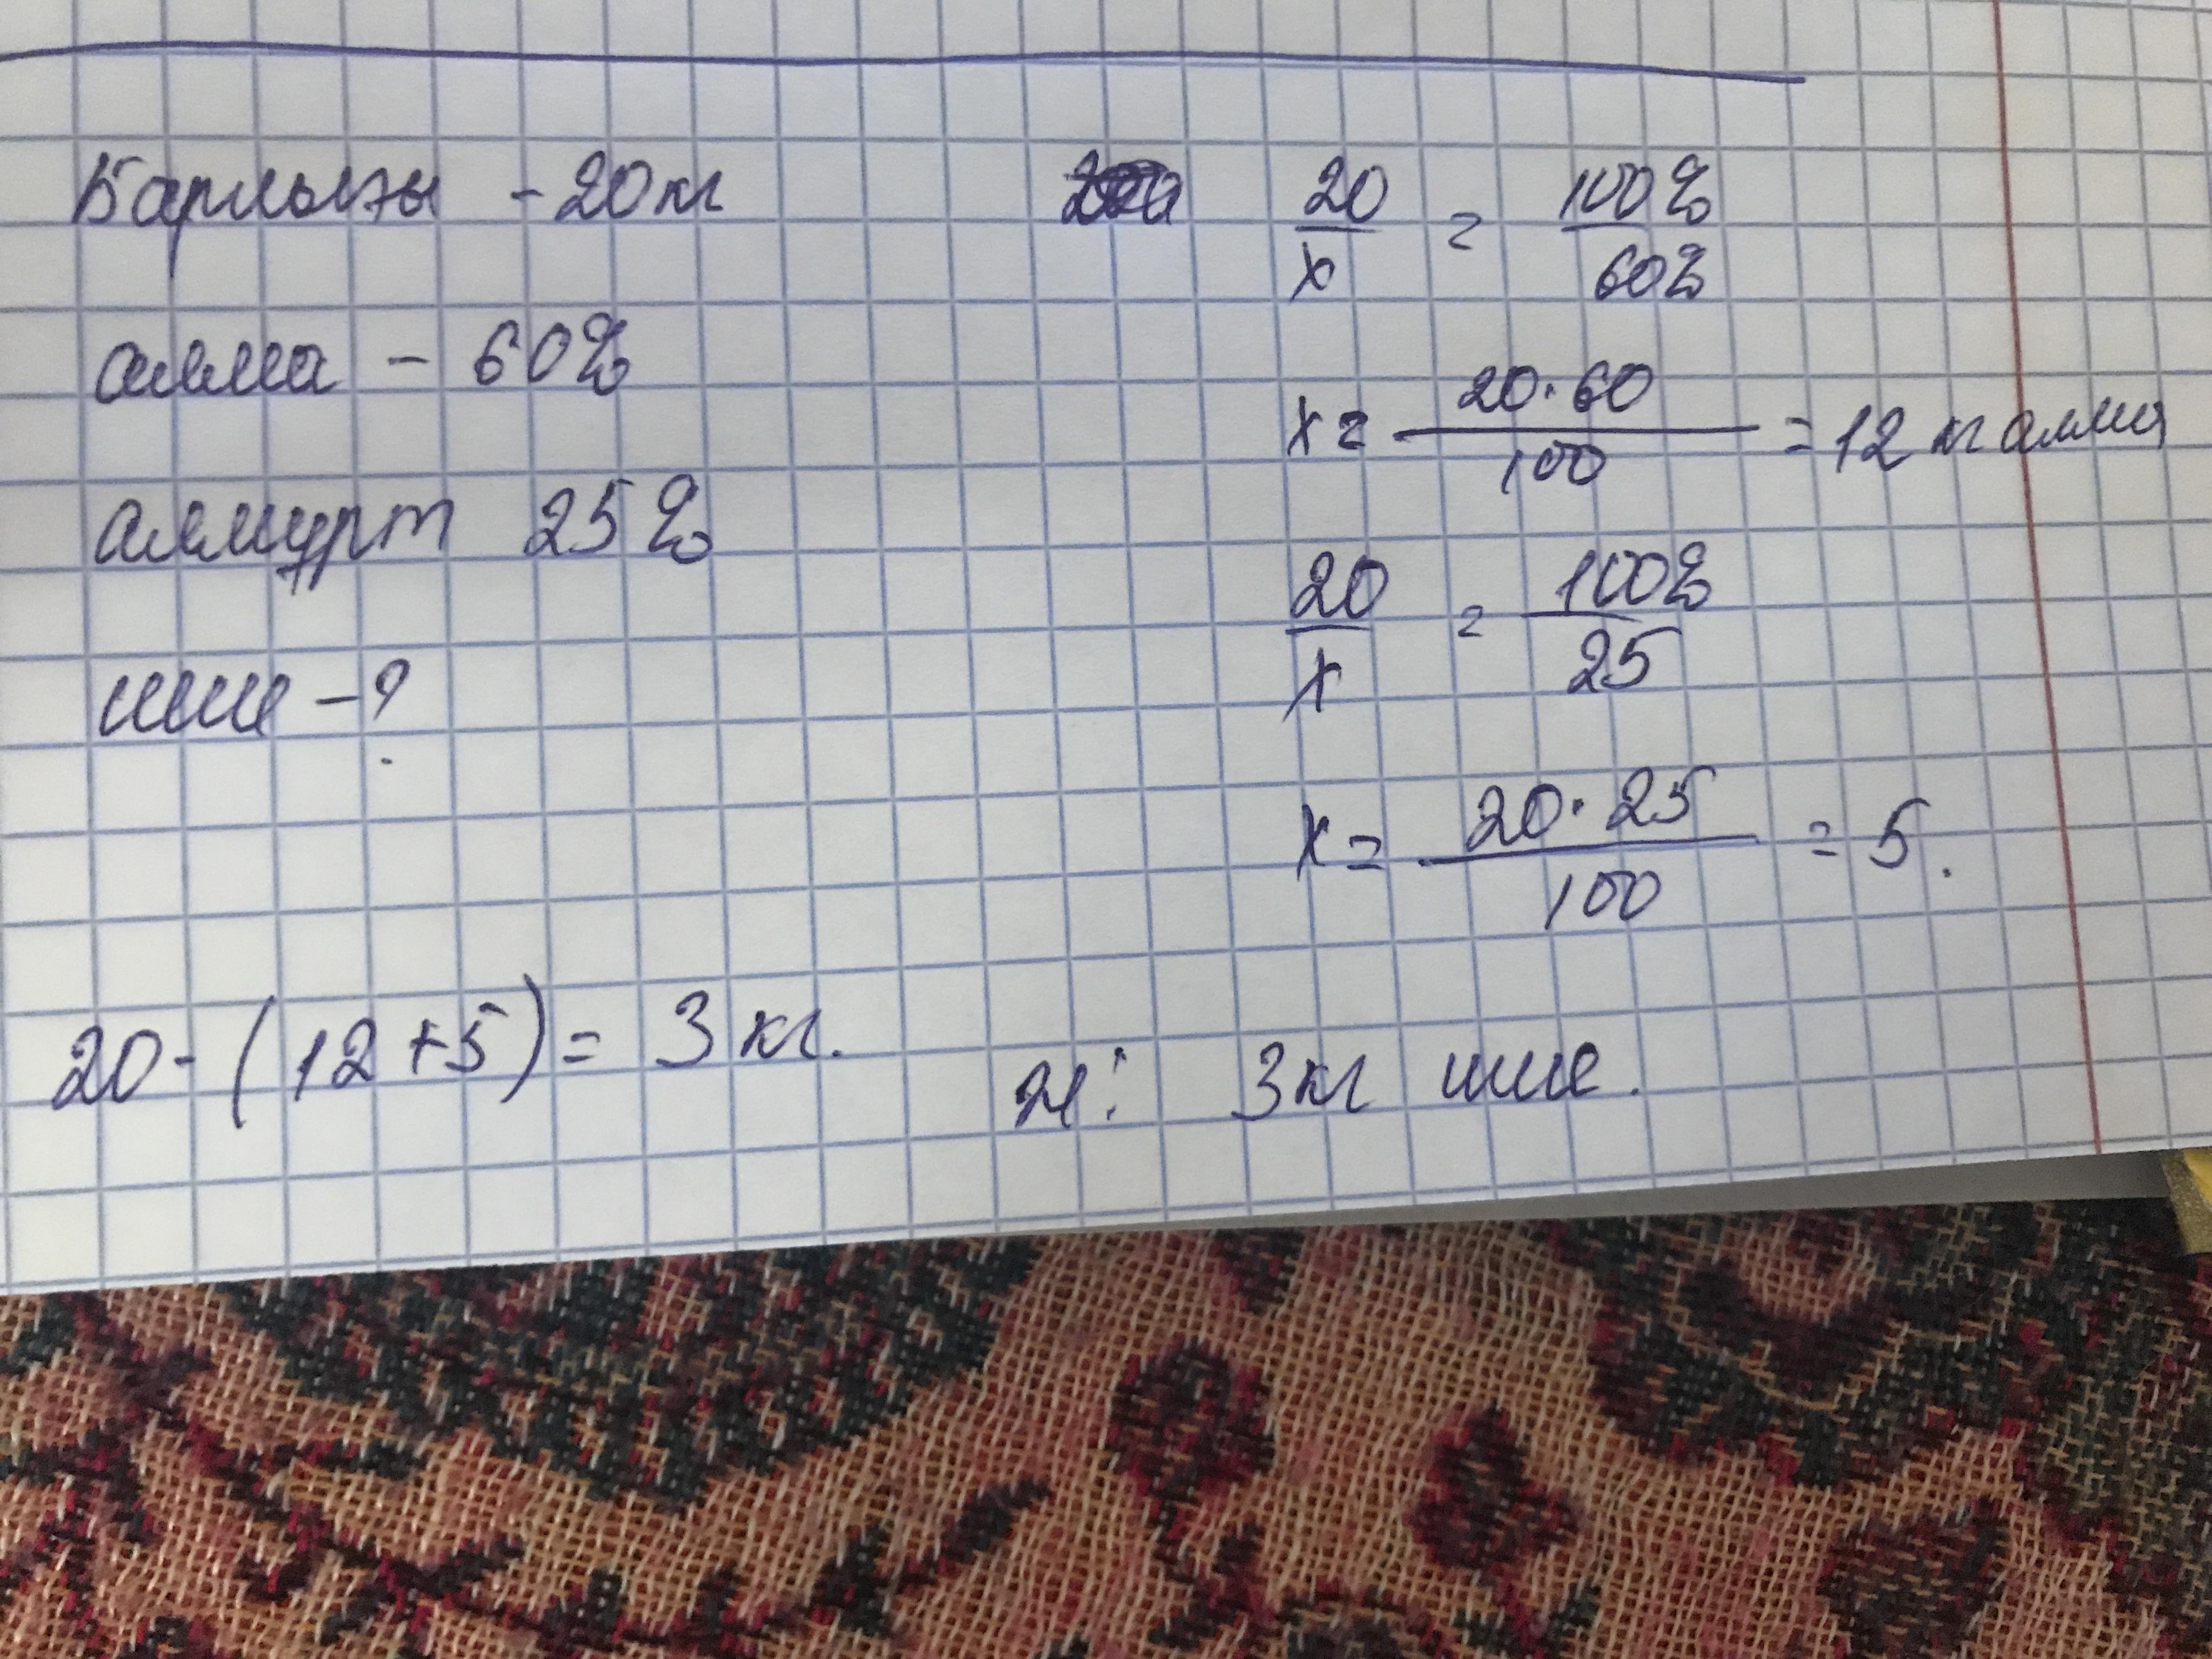 Барлығы - 20 кг
алма - 60%
алмұрт 25%
шие - ?
20/x = 100%/60%
x = 20·60/100 = 12 кг алма
20/x = 100%/25
x = 20·25/100 = 5.
20 - (12 + 5) = 3 кг.
Ж: 3 кг шие.